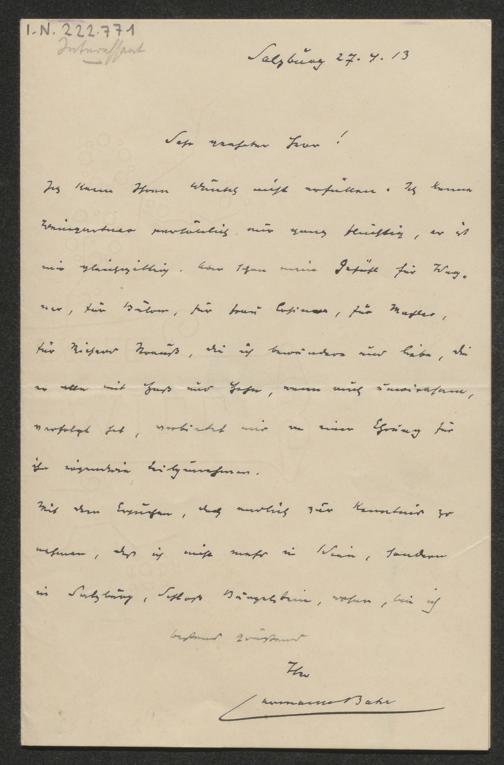 I.N. 222.771
Interessant
Salzburg 27. 4. 13
Sehr geehrter Herr!
Ich kann Ihren Wunsch nicht erfüllen. Ich kenne
Weingartner persönlich nur ganz flüchtig, er ist
mir gleichgiltig. Aber schon mein Gefühl für Wag-
ner, für Bülow, für Frau Cosima, für Mahler,
für Richard Strauß, die ich bewundere und liebe, die
er alle mit Haß und Hohn, wenn auch unwirksam,
verfolgt hat, verbietet mir an einer Ehrung für
ihn irgendwie teilzunehmen.
Mit dem Ersuchen, doch endlich zur Kenntnis zu
nehmen, daß ich nicht mehr in Wien, sondern
in Salzburg, Schloß Bürgelstein, wohne, bin ich
bestens grüßend
Ihr
Hermann Bahr